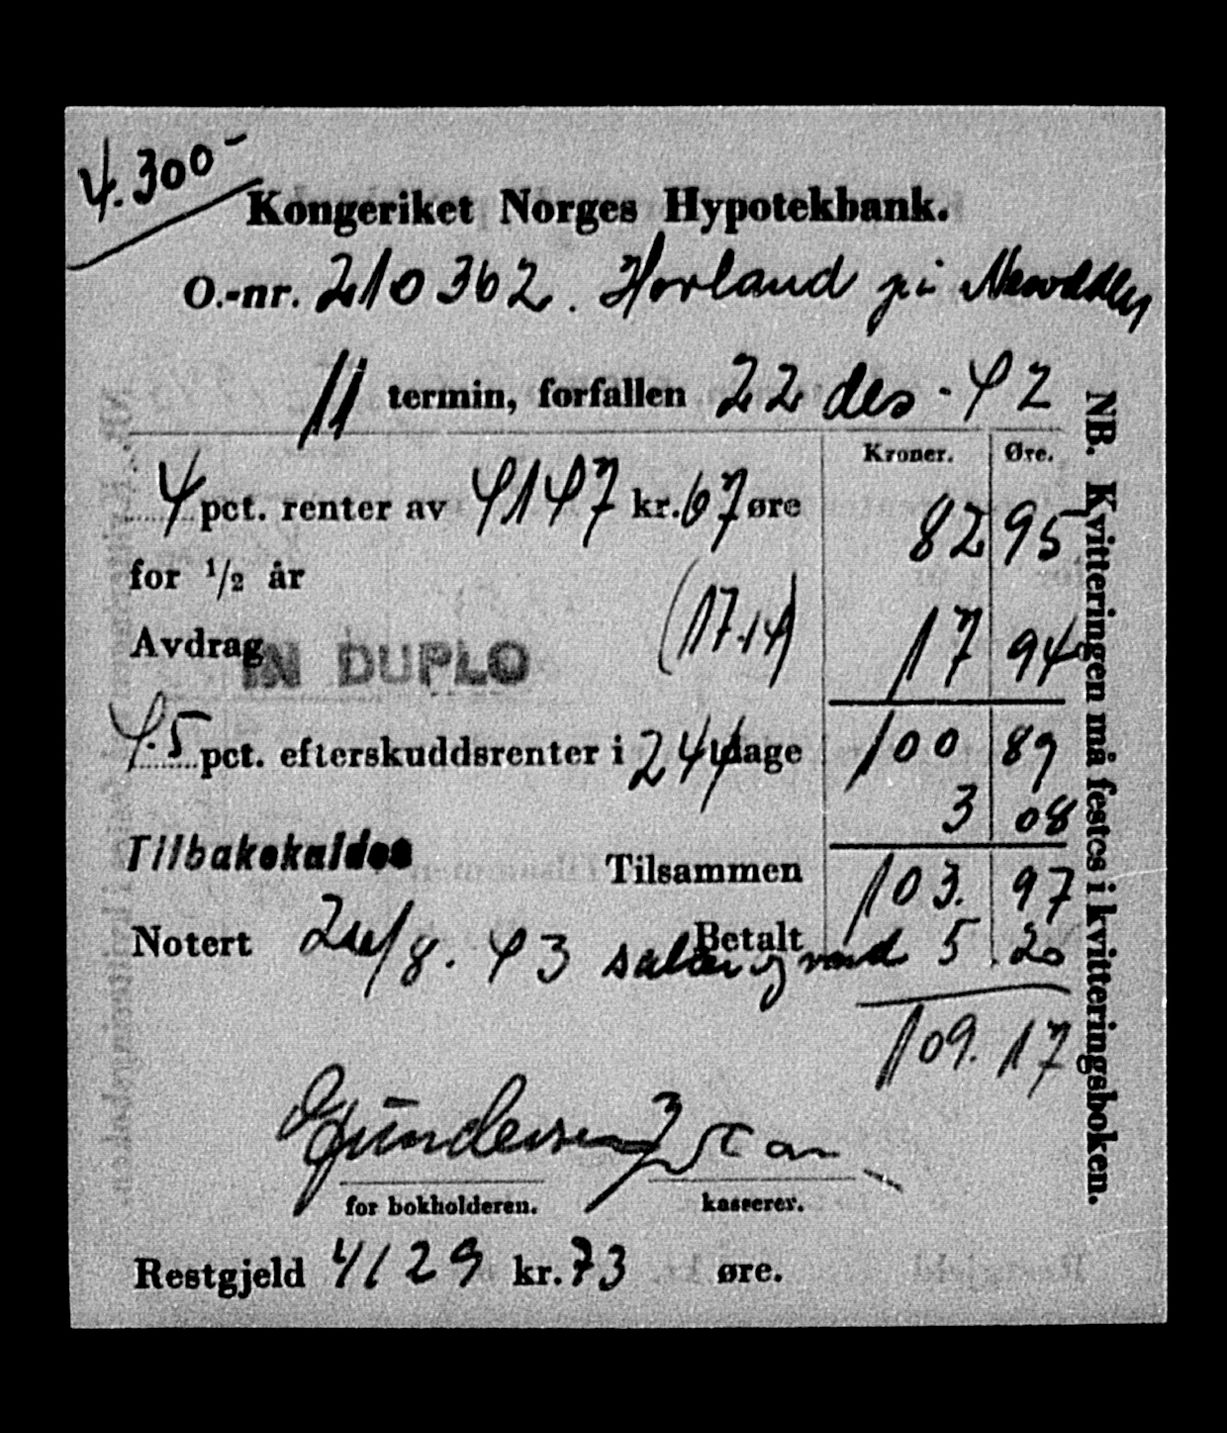 4.300-
Kongeriket Norges Hypotekbank.
O.-nr. 210362. Horland på
11 termin, forfallen 22 des - 42
Kroner. Øre.
4 pct. renter av 4147 kr. 67 øre 82 95
for 1/2 år
Avdrag (17.14) 17 94
IN DUPLO
4.5 pct. efterskuddsrenter i 244 dage 100 89
3 08
Tilbakekaldes Tilsammen 103. 97
Notert 8. 43 Betalt 5.20
109.17
Gundersen
for bokholderen. kasserer.
Restgjeld 4129 kr. 73 øre.
NB. Kvitteringen må festes i kvitteringsboken.